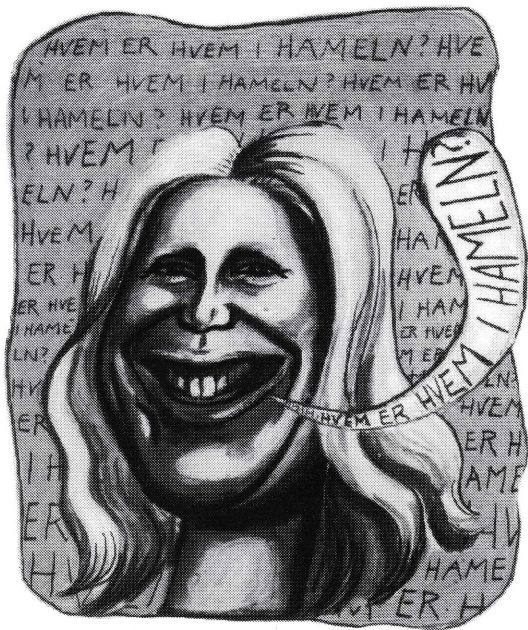 HVEM ER HVEM I HAMELN? HVE
M ER HVEM I HAMELN? HVEM ER HV
I HAMELN? HVEM ER HVEM I HAMELN
? HVEM I H
ELN? H ER
HVEM HA
ER H HVEM
ER HVE I HAM
I HAME ER HVE
LN? M ER
HV LN?
ER HVEM
I H ER H
AME
ER HV
H HAME
ER H
HVEM ER HVEM I HAMELN?